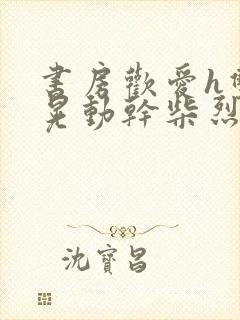 書房歡愛h
晃動幹柴烈
沈寶昌